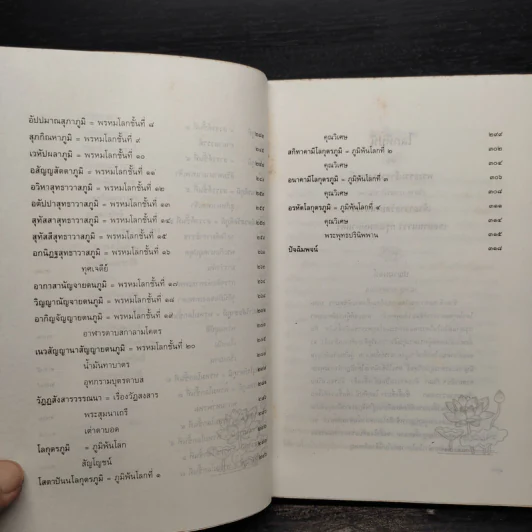 อัปปมาณสุภาภูมิ = พรหมโลกชั้นที่ ๘
สุภกิณหาภูมิ = พรหมโลกชั้นที่ ๙
เวหัปผลาภูมิ = พรหมโลกชั้นที่ ๑๐
อสัญญสัตตาภูมิ = พรหมโลกชั้นที่ ๑๑
อวิหาสุทธาวาสภูมิ = พรหมโลกชั้นที่ ๑๒
อตัปปาสุทธาวาสภูมิ = พรหมโลกชั้นที่ ๑๓
สุทัสสาสุทธาวาสภูมิ = พรหมโลกชั้นที่ ๑๔
สุทัสสีสุทธาวาสภูมิ = พรหมโลกชั้นที่ ๑๕
อกนิฏฐสุทธาวาสภูมิ = พรหมโลกชั้นที่ ๑๖
ทุศเจดีย์
อากาสานัญจายตนภูมิ = พรหมโลกชั้นที่ ๑๗
วิญญาณัญจายตนภูมิ = พรหมโลกชั้นที่ ๑๘
อากิญจัญญายตนภูมิ = พรหมโลกชั้นที่ ๑๙
อาฬารดาบสกาลามโคตร
เนวสัญญานาสัญญายตนภูมิ = พรหมโลกชั้นที่ ๒๐
น้ำมันทาบาตร
อุทกรามบุตรดาบส
วัฏฏสังสารวรรณนา = เรื่องวัฏสงสาร
พระสุมนาเถรี
เต่าตาบอด
โลกุตรภูมิ = ภูมิพ้นโลก
สัญโญชน์
โสดาบันนโลกุตรภูมิ = ภูมิพ้นโลกที่ ๑
คุณวิเศษ ๒๙๙
สกิทาคามีโลกุตรภูมิ = ภูมิพ้นโลกที่ ๒ ๓๐๒
คุณวิเศษ ๓๐๔
อนาคามีโลกุตรภูมิ = ภูมิพ้นโลกที่ ๓ ๓๐๖
คุณวิเศษ ๓๐๘
อรหัตโลกุตรภูมิ = ภูมิพ้นโลกที่ ๔ ๓๑๑
คุณวิเศษ ๓๑๔
พระพุทธปรินิพพาน ๓๑๕
ปัจฉิมพจน์ ๓๑๘